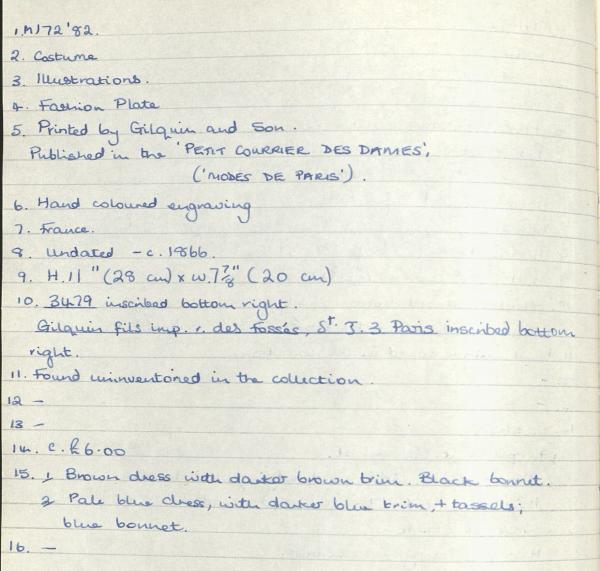 1. M172 '82.
2. Costume
3. Illustrations.
4. Fashion Plate
5. Printed by Gilquin and Son.
Published in the 'PETIT COURRIER DES DAMES',
('MODES DE PARIS').
6. Hand coloured engraving
7. France.
8. Undated - c. 1866.
9. H. 11" (28 cm) x W. 7 7/8" (20 cm)
10. 3479 inscribed bottom right.
Gilquin fils imp. r. des Fossés, St. J. 3 Paris inscribed bottom
right.
11. Found uninventoried in the collection.
12 -
13 -
14. c. £6.00
15. 1 Brown dress with darker brown trim. Black bonnet.
2 Pale blue dress, with darker blue trim, + tassels;
blue bonnet.
16. -